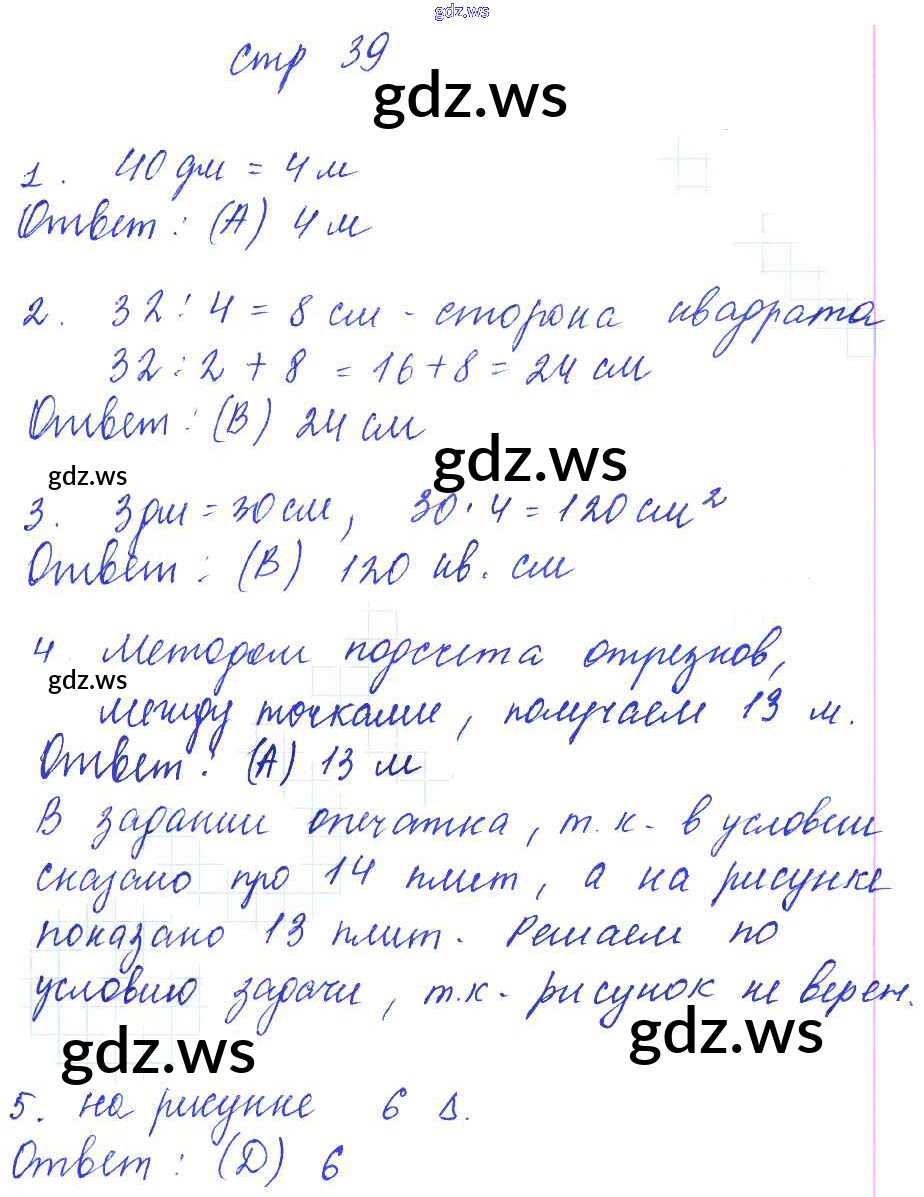 gdz.ws
стр 39
gdz.ws
1. 40 дм = 4 м
Ответ: (А) 4 м
2. 32 : 4 = 8 см - сторона квадрата
32 : 2 + 8 = 16 + 8 = 24 см
Ответ: (В) 24 см
gdz.ws
gdz.ws
3. 3 дм = 30 см, 30 · 4 = 120 см²
Ответ: (В) 120 кв. см
4 Методом подсчета отрезков,
gdz.ws
между точками, получаем 13 м.
Ответ: (А) 13 м
В задании опечатка, т.к. в условии
сказано про 14 плит, а на рисунке
показано 13 плит. Решаем по
условию задачи, т.к. рисунок не верен.
gdz.ws
gdz.ws
5. на рисунке 6 Δ.
Ответ: (D) 6